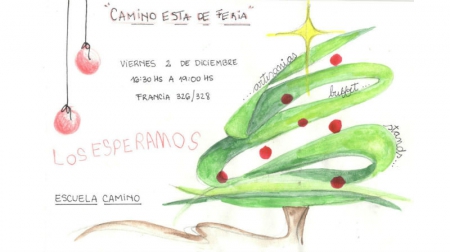 "CAMINO ESTA DE FERIA"
VIERNES 2 DE DICIEMBRE
16:30 HS A 19:00 HS
FRANCIA 326/328
LOS ESPERAMOS
ESCUELA CAMINO
...artesanias
buffet
stands...